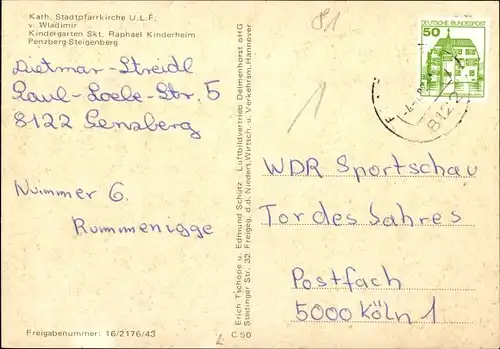 Kath. Stadtpfarrkirche U.L.F.
v. Wladimir
Kindergarten Skt. Raphael Kinderheim
Penzberg-Steigenberg
81
DEUTSCHE BUNDESPOST
50
8122
1
Dietmar Streidl
Paul-Loebe-Str. 5
8122 Penzberg
Nummer 6.
Rummenigge
Erich Tschöpe u. Edmund Schütz Luftbildvertrieb Delmenhorst oHG
Stedinger Str. 32 Freigeg. d.d. Nieders. Wirtsch. u. Verkehrsm. Hannover
WDR Sportschau
Tor des Jahres
Postfach
5000 Köln 1
Freigabenummer: 16/2176/43
C 50